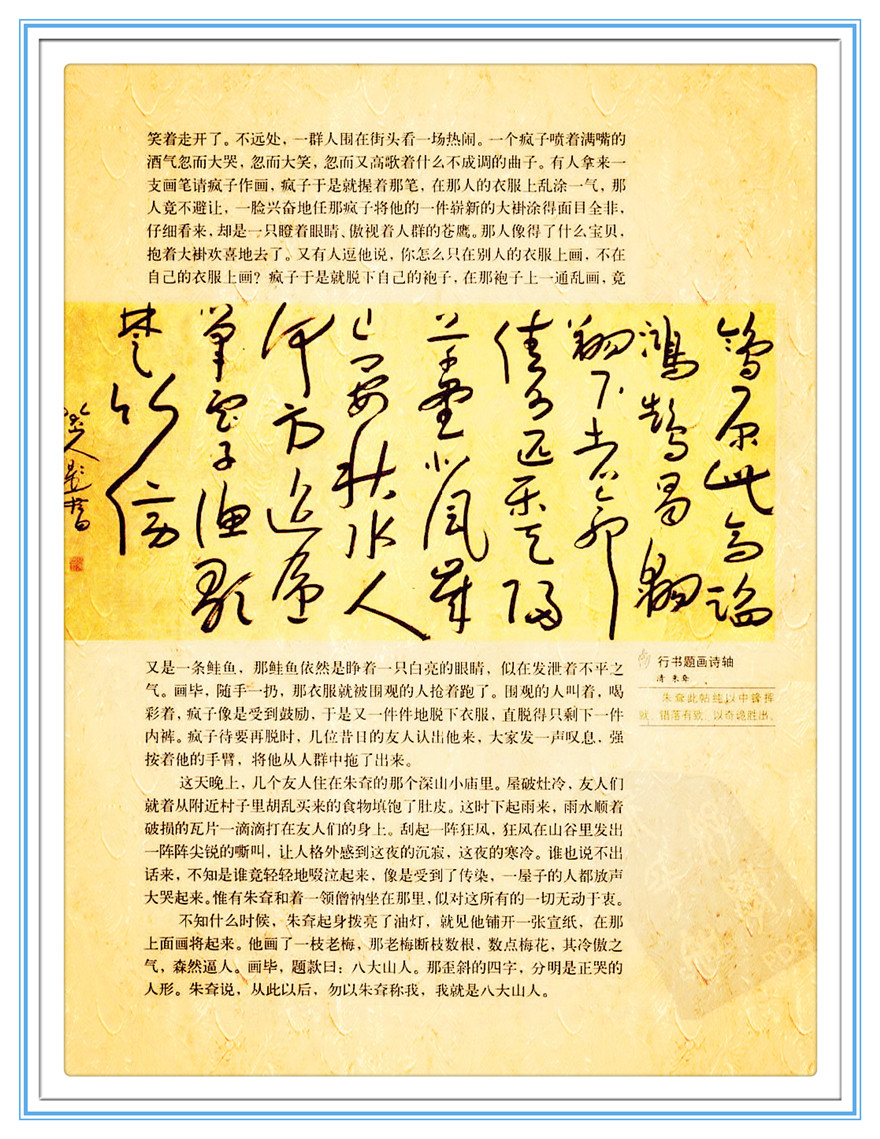 笑着走开了。不远处，一群人围在街头看一场热闹。一个疯子喷着满嘴的
酒气忽而大哭，忽而大笑，忽而又高歌着什么不成调的曲子。有人拿来一
支画笔请疯子作画，疯子于是就握着那笔，在那人的衣服上乱涂一气，那
人竟不避让，一脸兴奋地任那疯子将他的一件崭新的大褂涂得面目全非，
仔细看来，却是一只瞪着眼睛、傲视着人群的苍鹰。那人像得了什么宝贝，
抱着大褂欢喜地去了。又有人逗他说，你怎么只在别人的衣服上画，不在
自己的衣服上画？疯子于是就脱下自己的袍子，在那袍子上一通乱画，竟
鸿鹄易翱
翔下士
佳
山安秋水人
何方
笔
楚竹
八大山人题书
又是一条鲑鱼，那鲑鱼依然是睁着一只白亮的眼睛，似在发泄着不平之
气。画毕，随手一扔，那衣服就被围观的人抢着跑了。围观的人叫着，喝
彩着，疯子像是受到鼓励，于是又一件件地脱下衣服，直脱得只剩下一件
内裤。疯子待要再脱时，几位昔日的友人认出他来，大家发一声叹息，强
按着他的手臂，将他从人群中拖了出来。
这天晚上，几个友人住在朱耷的那个深山小庙里。屋破灶冷，友人们
就着从附近村子里胡乱买来的食物填饱了肚皮。这时下起雨来，雨水顺着
破损的瓦片一滴滴打在友人们的身上。刮起一阵狂风，狂风在山谷里发出
一阵阵尖锐的嘶叫，让人格外感到这夜的沉寂，这夜的寒冷。谁也说不出
话来，不知是谁竟轻轻地啜泣起来，像是受到了传染，一屋子的人都放声
大哭起来。惟有朱耷和着一领僧衲坐在那里，似对这所有的一切无动于衷。
不知什么时候，朱耷起身拨亮了油灯，就见他铺开一张宣纸，在那
上面画将起来。他画了一枝老梅，那老梅断枝数根，数点梅花，其冷傲之
气，森然逼人。画毕，题款曰：八大山人。那歪斜的四字，分明是正哭的
人形。朱耷说，从此以后，勿以朱耷称我，我就是八大山人。
行书题画诗轴
清 朱耷
朱耷此帖纯以中锋挥
就，错落有致，以奇诡胜出。